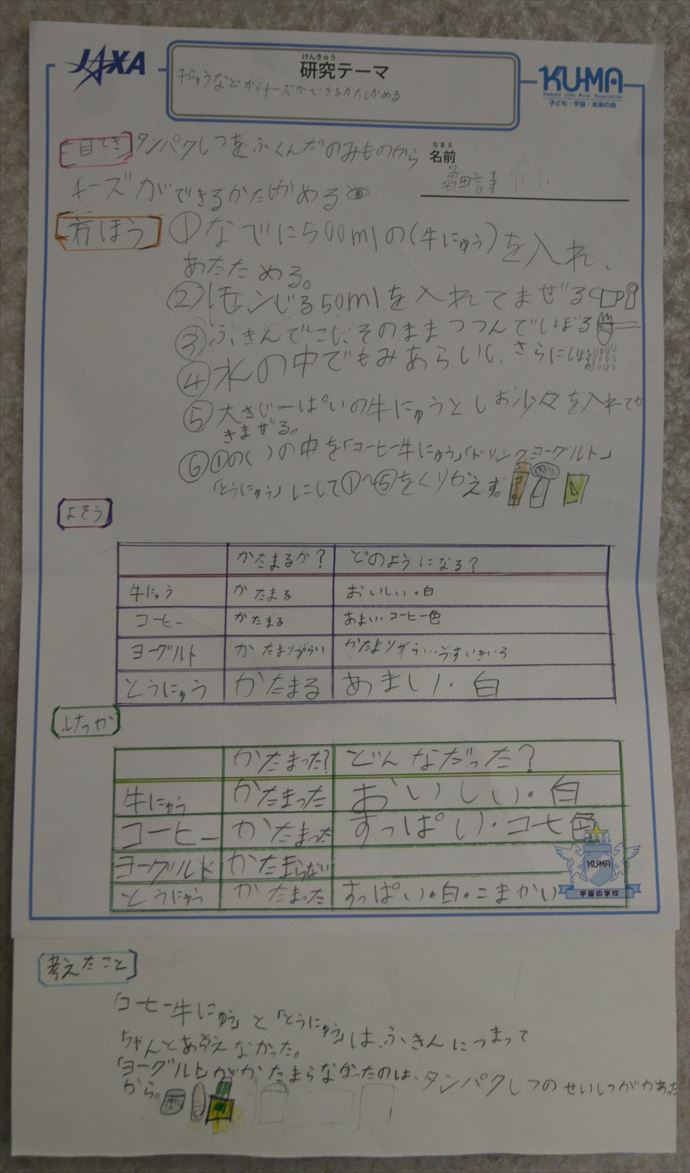 JAXA
けんきゅう
研究テーマ
牛にゅうなどからチーズができるかたしかめる
KU-MA
子ども・宇宙・未来の会
目てき
タンパクしつをふくんだのみものから
なまえ
名前
チーズができるかたしかめる
方ほう
①なべに500mlの(牛にゅう)を入れ、
あたためる。
②レモンじる50mlを入れてまぜる
③ふきんでこし、そのままつつんでしぼる
④水の中でもみあらいし、さらにしぼる
⑤大さじ一ぱいの牛にゅうとしお少々を入れてか
きまぜる。
⑥①の( )の中を「コーヒー牛にゅう」「ドリンクヨーグルト」
「とうにゅう」にして①〜⑤をくりかえす。
よそう
かたまるか? どのようになる?
牛にゅう かたまる おいしい・白
コーヒー かたまる あまい・コーヒー色
ヨーグルト かたまりずらい かたまりずらい・うすいきいろ
とうにゅう かたまる あまい・白
けっか
かたまった? どんなだった?
牛にゅう かたまった おいしい・白
コーヒー かたまった すっぱい・コーヒ色
ヨーグルト かたまらない
とうにゅう かたまった すっぱい・白・こまかい
KU-MA
宇宙の学校
考えたこと
「コーヒー牛にゅう」と「とうにゅう」は、ふきんにつまって
ちゃんとあらえなかった。
「ヨーグルト」がかたまらなかったのは、タンパクしつのせいしつがかあった
から。